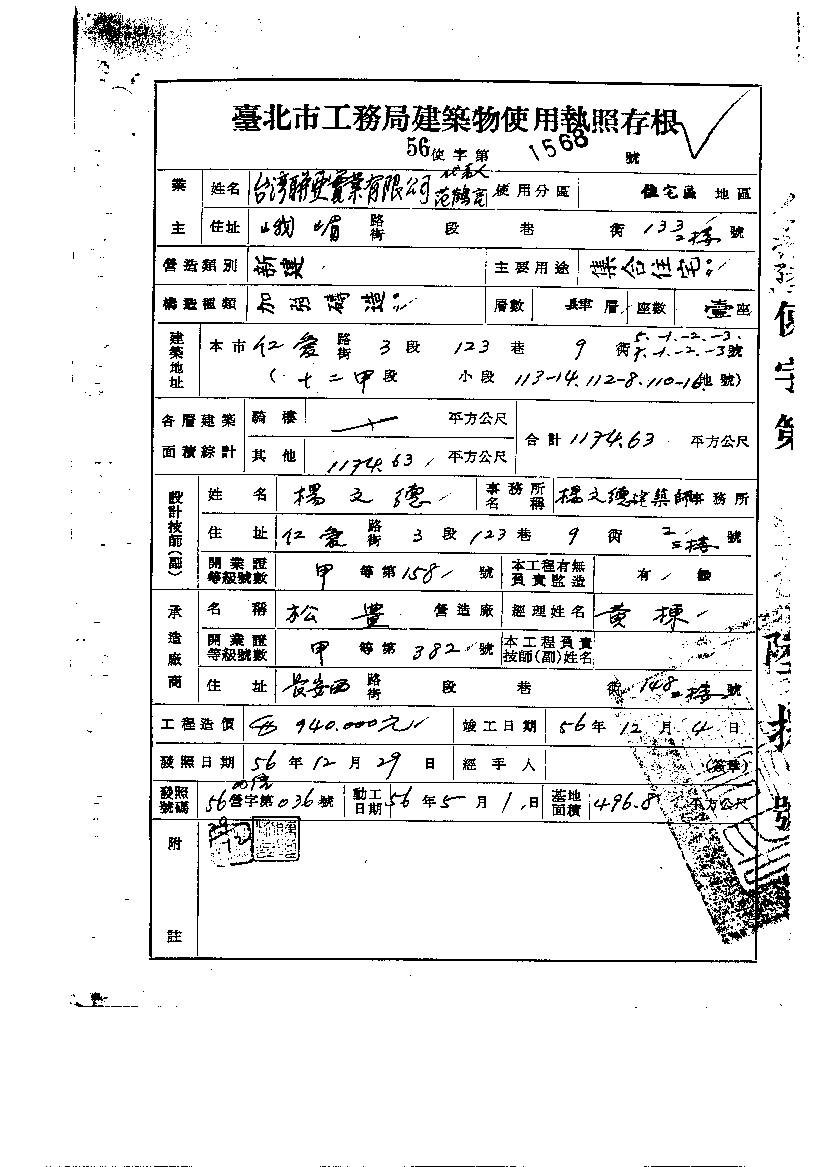 臺北市工務局建築物使用執照存根
56 使字第 1568 號
業主 姓名 台湾聯亞實業有限公司 代表人 范鶴 使用分區 住宅區 地區
住址 峨嵋 路街 段 巷 衖 133 二楼 號
營造類別 新建 主要用途 集合住宅
構造種類 加强磚造 層數 肆 層 座數 壹 座
建築地址 本市 仁爱 路街 3 段 123 巷 9 衖 5.-1.-2.-3. 7.-1.-2.-3 號
( 十二甲 段 小段 113-14.112-8.110-16 地號 )
各層建築面積綜計 騎樓 平方公尺
其他 1174.63 平方公尺 合計 1174.63 平方公尺
設計技師(副) 姓名 楊文德 事務所名稱 楊文德建築師事務所
住址 仁爱 路街 3 段 123 巷 9 衖 2 二楼 號
開業證等級號數 甲 等第 158 號 本工程有無負責監造 有
承造廠商 名稱 松豊 營造廠 經理姓名 黄棟
開業證等級號數 甲 等第 382 號 本工程負責技師(副)姓名
住址 長安西 路街 段 巷 衖 148 二楼 號
工程造價 940.000元 竣工日期 56 年 12 月 4 日
發照日期 56 年 12 月 29 日 經手人 (簽章)
發照號碼 56 營字第 036 號 動工日期 56 年 5 月 1 日 基地面積 496.8 平方公尺
附註
使字第
陸拾 號